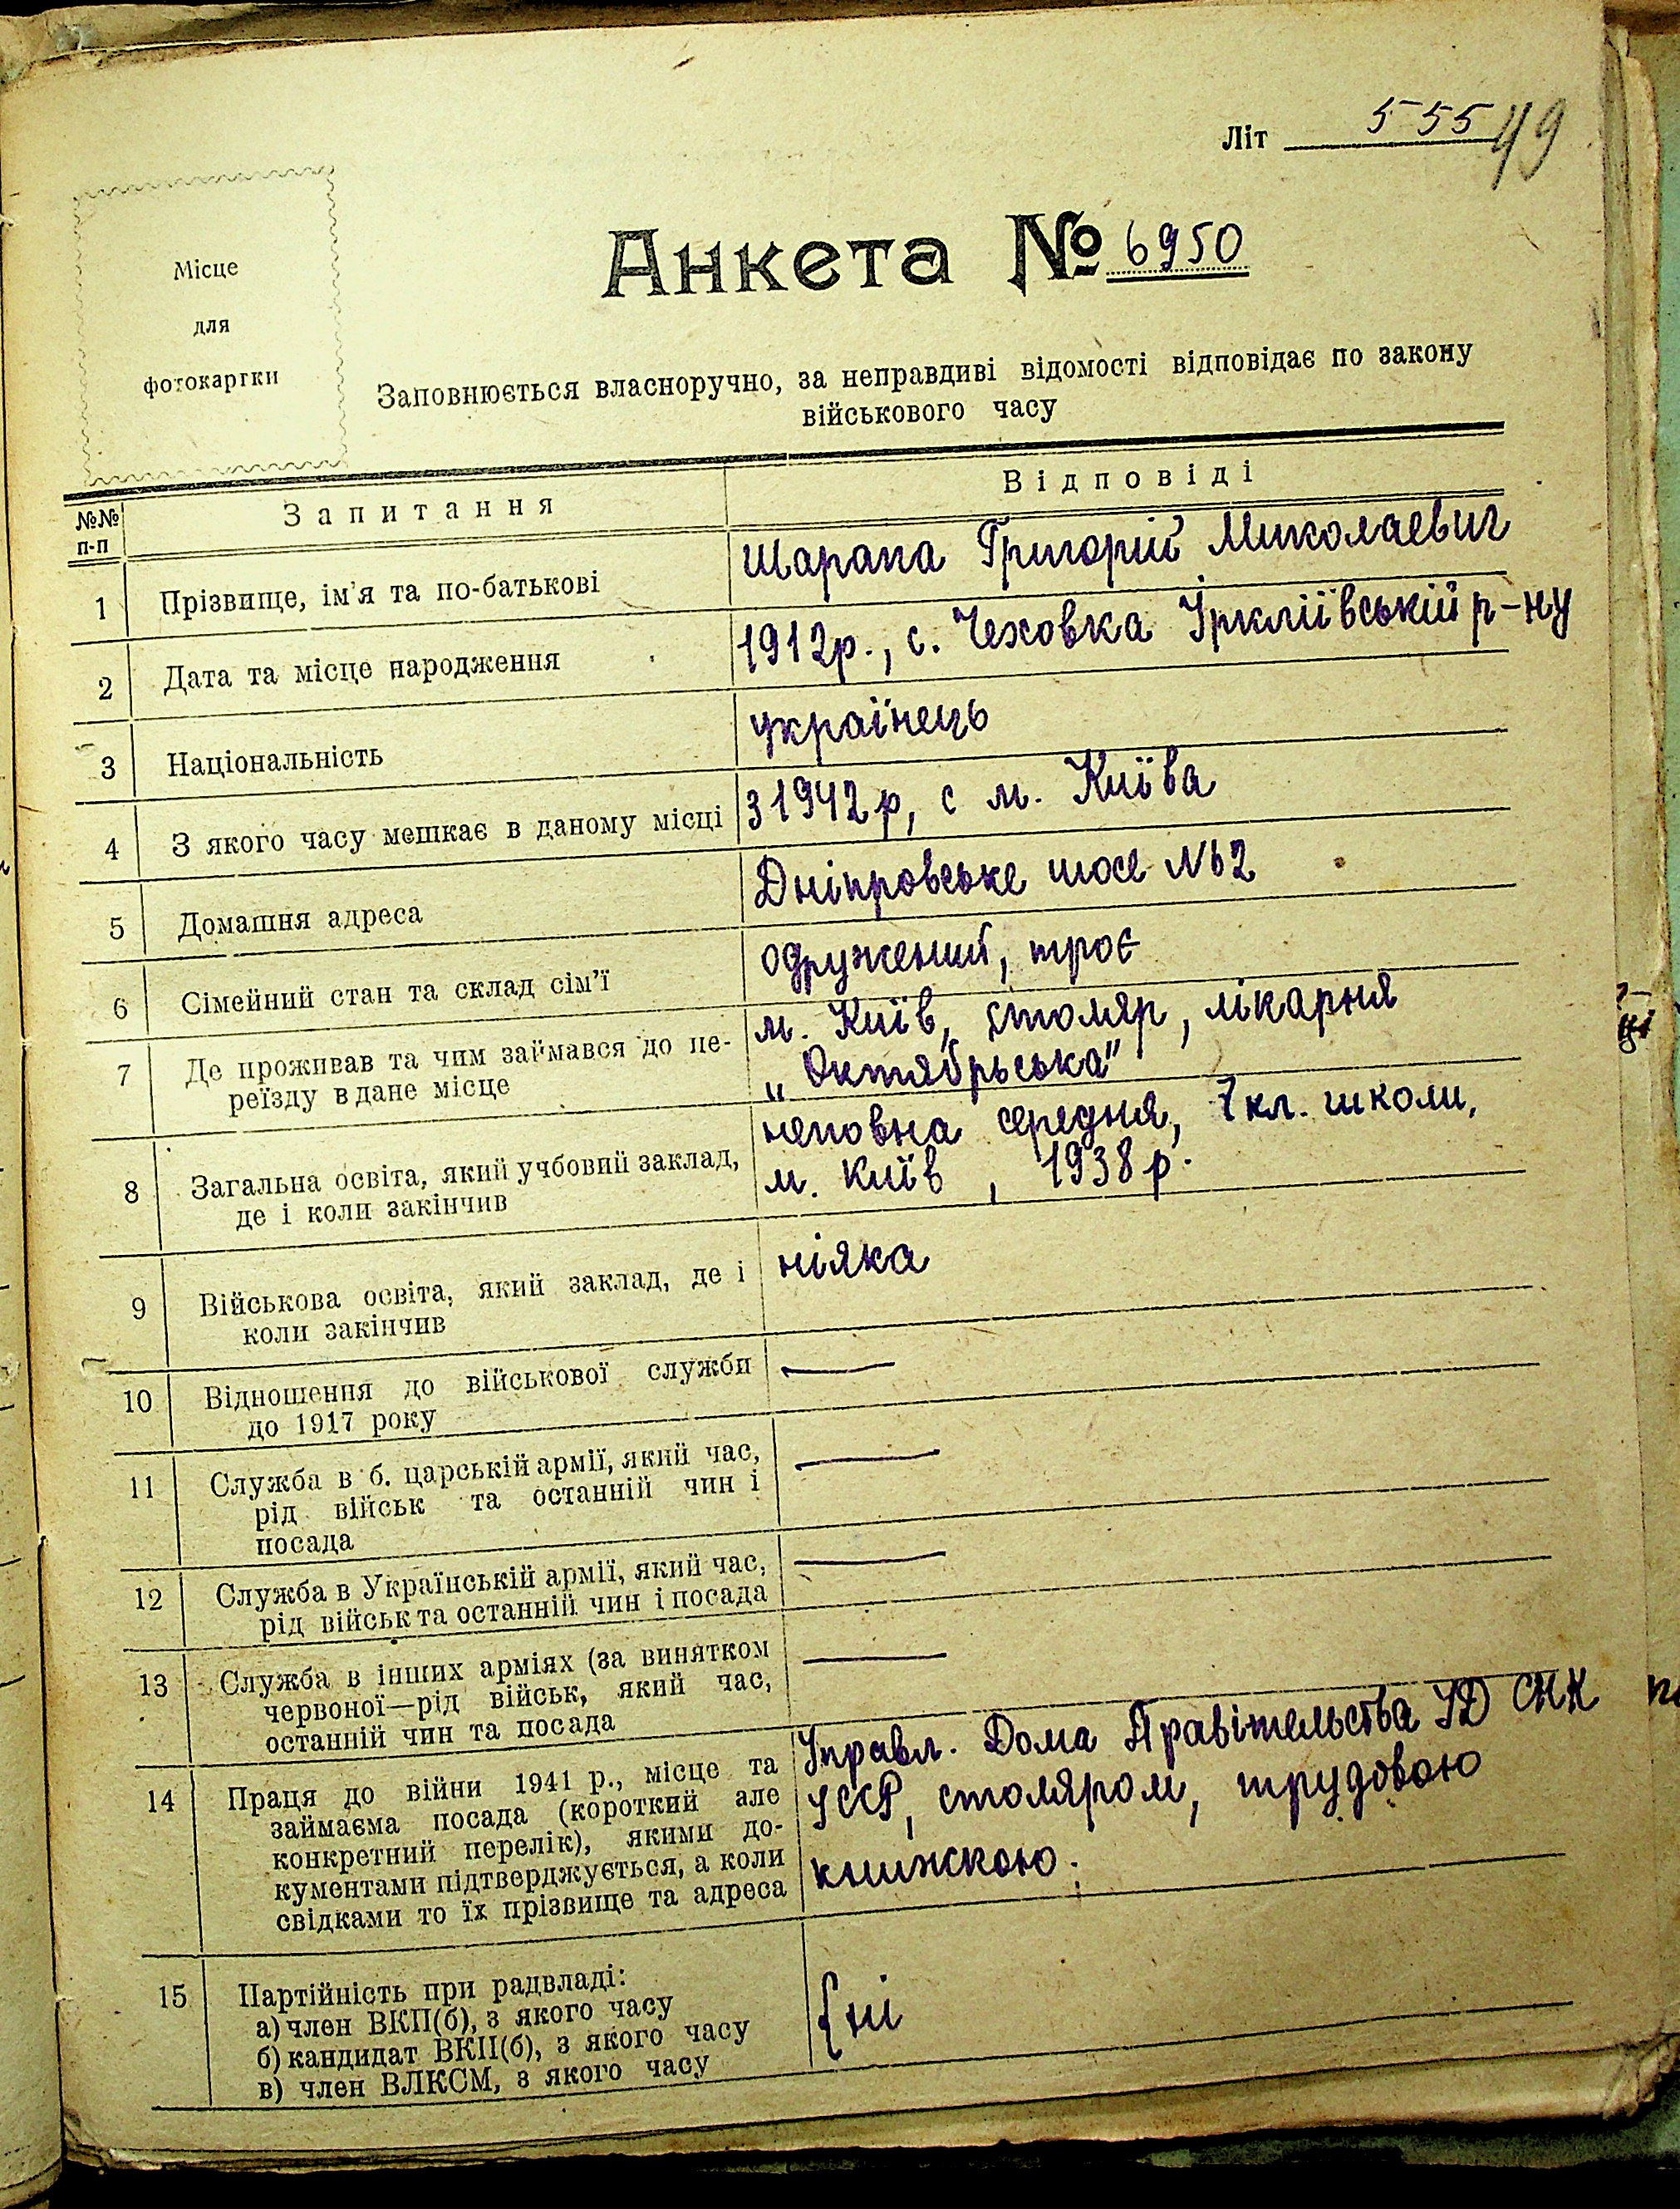 Літ 555
49
Місце
для
фотокартки
Анкета № 6950
Заповнюється власноручно, за неправдиві відомості відповідає по закону
військового часу
№№ п-п
Запитання
Відповіді
1
Прізвище, ім'я та по-батькові
Шарапа Григорій Миколаевич
2
Дата та місце народження
1912р., с. Чеховка Іркліївській р-ну
3
Національність
українець
4
З якого часу мешкає в даному місці
з 1942р, с м. Київа
5
Домашня адреса
Дніпровське шосе №2
6
Сімейний стан та склад сім'ї
одружений, троє
7
Де проживав та чим займався до пе-
реїзду в дане місце
м. Київ, столяр, лікарня
„Октябрьська"
8
Загальна освіта, який учбовий заклад,
де і коли закінчив
неповна середня, 7 кл. школи,
м. Київ, 1938 р.
9
Військова освіта, який заклад, де і
коли закінчив
ніяка
10
Відношення до військової служби
до 1917 року
—
11
Служба в б. царській армії, який час,
рід військ та останній чин і
посада
—
12
Служба в Українській армії, який час,
рід військ та останній чин і посада
—
13
Служба в інших арміях (за винятком
червоної—рід військ, який час,
останній чин та посада
—
14
Праця до війни 1941 р., місце та
займаєма посада (короткий але
конкретний перелік), якими до-
кументами підтверджується, а коли
свідками то їх прізвище та адреса
Управл. Дома Правітельства УД СНК
УССР, столяром, трудовою
книжкою.
15
Партійність при радвладі:
а) член ВКП(б), з якого часу
б) кандидат ВКП(б), з якого часу
в) член ВЛКСМ, з якого часу
{ні